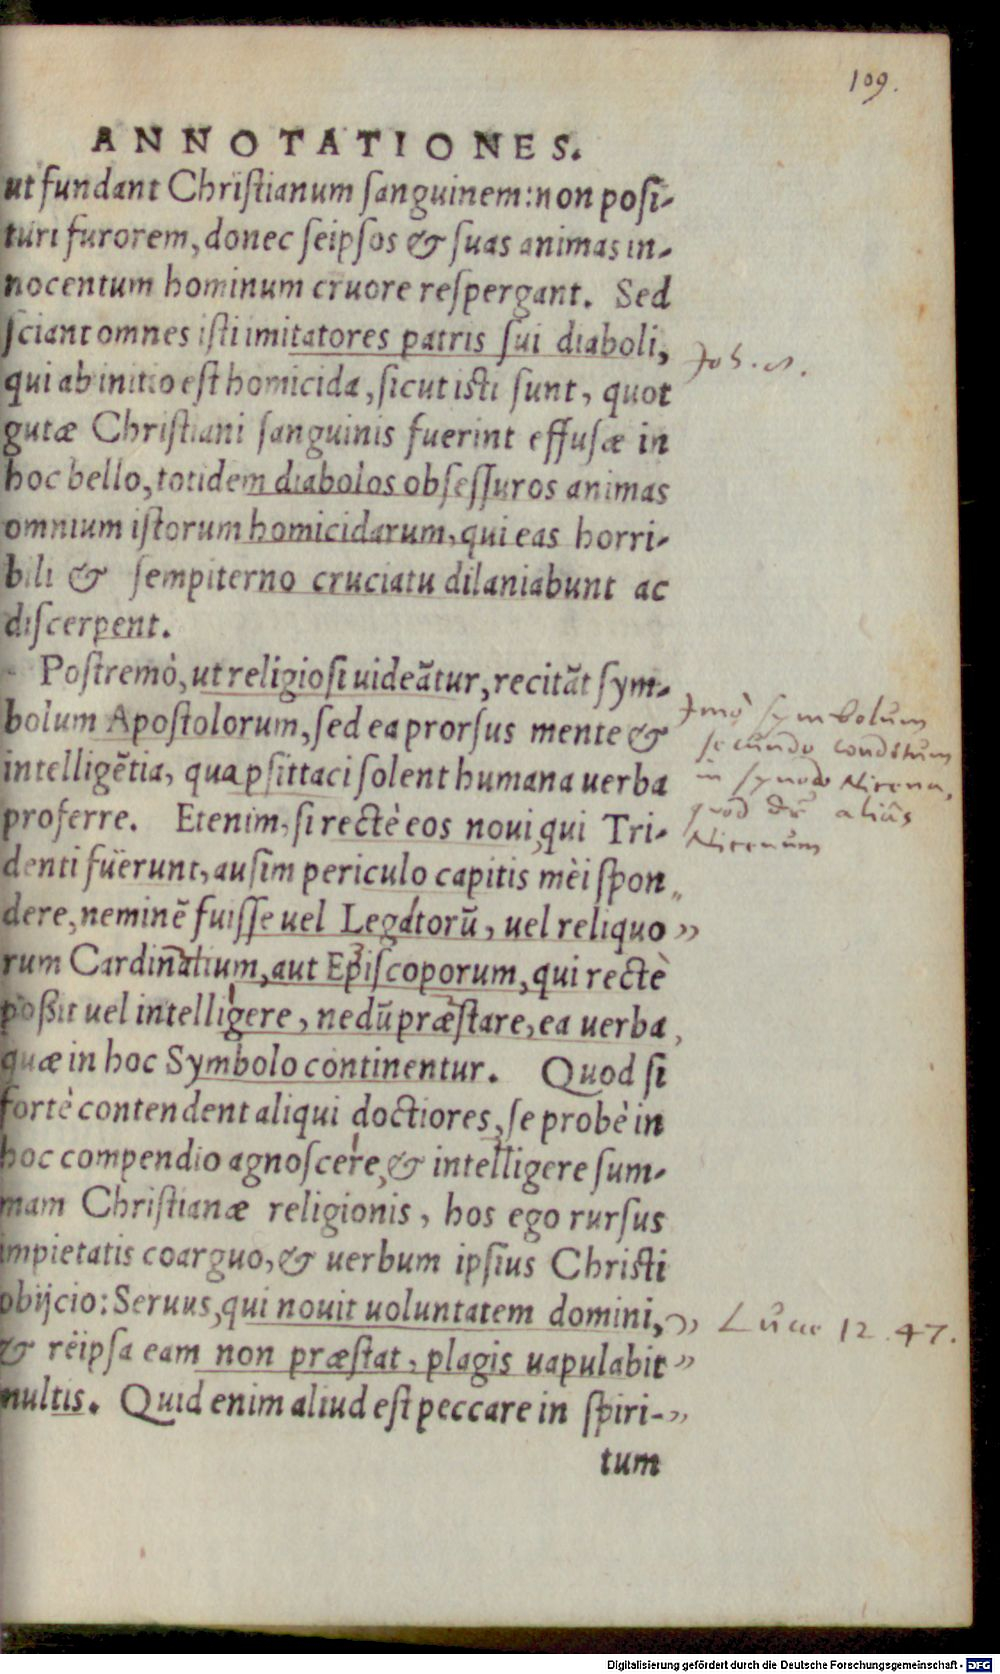 109.
ANNOTATIONES.
ut fundant Chriſtianum ſanguinem: non poſi-
turi furorem, donec ſeipſos & ſuas animas in-
nocentum hominum cruore reſpergant. Sed
ſciant omnes iſti imitatores patris ſui diaboli,
Joh. 8.
qui ab initio eſt homicida, ſicut iſti ſunt, quot
gutæ Chriſtiani ſanguinis fuerint effuſæ in
hoc bello, totidem diabolos obſeſſuros animas
omnium iſtorum homicidarum, qui eas horri-
bili & ſempiterno cruciatu dilaniabunt ac
diſcerpent.
Poſtremò, ut religioſi uideãtur, recitãt ſym-
bolum Apoſtolorum, ſed ea prorſus mente &
intelligẽtia, qua pſittaci ſolent humana uerba
proferre. Etenim, ſi rectè eos noui, qui Tri-
Jmò Symbolum
secundo conditum
in synodo Nicena,
quod dr̃ aliàs
Nicenum
denti fuërunt, auſim periculo capitis mèi ſpon„
dere, neminẽ fuiſſe uel Legatorũ, uel reliquo „
rum Cardinalium, aut Epiſcoporum, qui rectè
poßit uel intelligere, nedũ præſtare, ea uerba,
quæ in hoc Symbolo continentur. Quod ſi
fortè contendent aliqui doctiores, ſe probè in
hoc compendio agnoſcere, & intelligere ſum-
mam Chriſtianæ religionis, hos ego rurſus
impietatis coarguo, & uerbum ipſius Chriſti
obijcio: Seruus, qui nouit uoluntatem domini, „
Lucae 12. 47.
& rëipſa eam non præſtat, plagis uapulabit „
multis. Quid enim aliud eſt peccare in ſpiri- „
tum
Digitalisierung gefördert durch die Deutsche Forschungsgemeinschaft - DFG